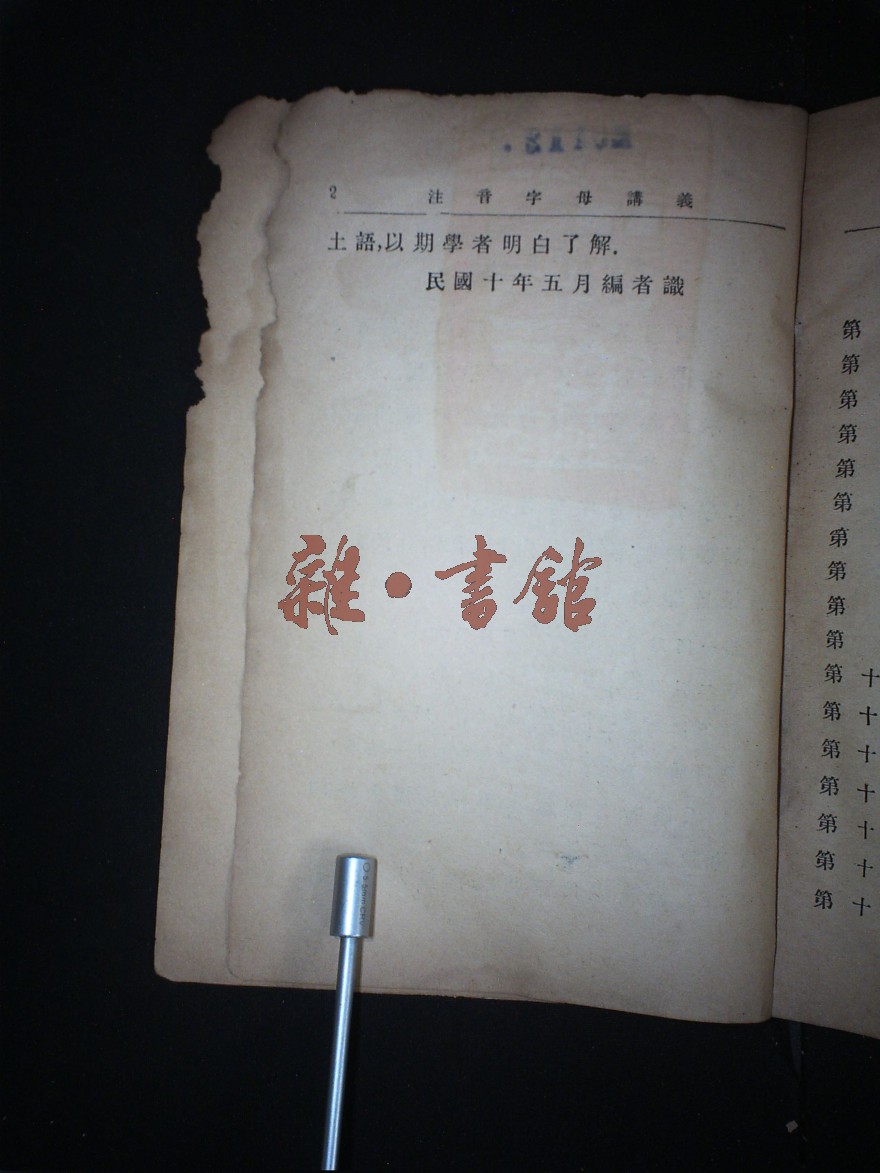 2 注音字母講義
土語,以期學者明白了解.
民國十年五月編者識
雜·書館
第
第
第
第
第
第
第
第
第
第
第十
第十
第十
第十
第十
第十
第十